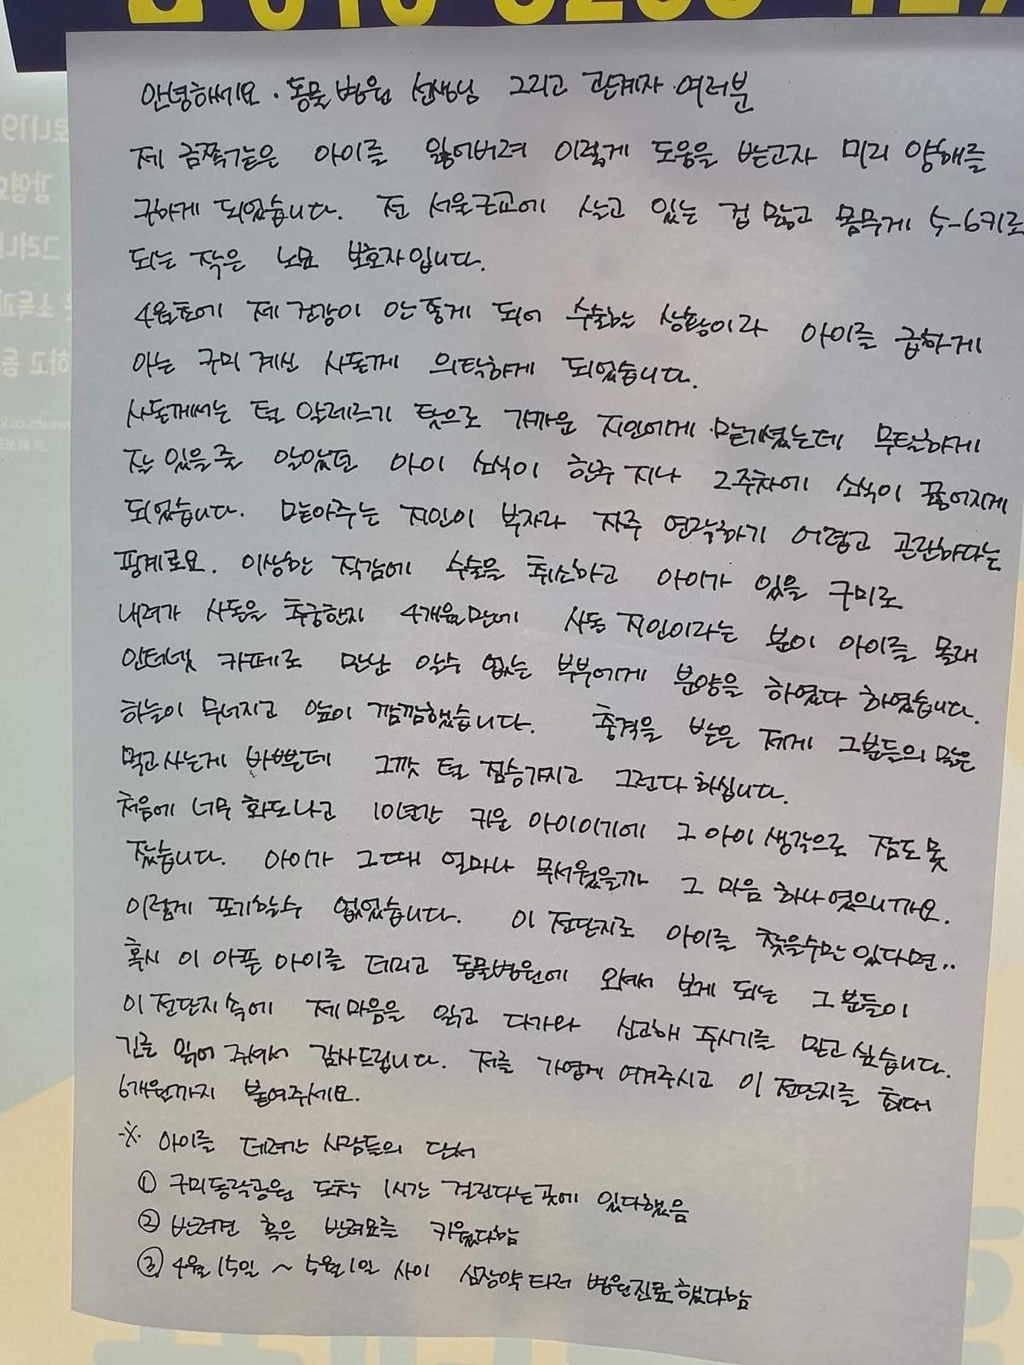 안녕하세요. 동물병원 선생님 그리고 관계자 여러분
제 금쪽같은 아이를 잃어버려 이렇게 도움을 받고자 미리 양해를
구하게 되었습니다. 전 서울근교에 살고 있는 겁 많고 몸무게 5-6키로
되는 작은 노묘 보호자입니다.
4월초에 제 건강이 안 좋게 되어 수술하는 상황이라 아이를 급하게
아는 구미 계신 사돈께 의탁하게 되었습니다.
사돈께서는 털 알레르기 탓으로 가까운 지인에게 맡기셨는데 무탈하게
잘 있을줄 알았던 아이 소식이 한주 지나 2주차에 소식이 끊어지게
되었습니다. 맡아주는 지인이 부자라 자주 연락하기 어렵고 곤란하다는
핑계로요. 이상한 직감에 수술을 취소하고 아이가 있을 구미로
내려가 사돈을 추궁한지 4개월만에 사돈 지인이라는 분이 아이를 몰래
인터넷 카페로 만난 알수 없는 부부에게 분양을 하였다 하였습니다.
하늘이 무너지고 앞이 깜깜했습니다. 충격을 받은 제게 그분들의 말은
먹고사는게 바쁜데 그깟 털 짐승가지고 그런다 하십니다.
처음에 너무 화도나고 10년간 키운 아이이기에 그 아이 생각으로 잠도 못
잤습니다. 아이가 그때 얼마나 무서웠을까 그 마음 하나였으니까요.
이렇게 포기할수 없었습니다. 이 전단지로 아이를 찾을수만 있다면..
혹시 이 아픈 아이를 데리고 동물병원에 오셔서 보게 되는 그 분들이
이 전단지 속에 제 마음을 읽고 다가와 신고해 주시기를 믿고 싶습니다.
긴글 읽어 주셔서 감사드립니다. 저를 가엽게 여겨주시고 이 전단지를 최대
6개월까지 붙여주세요.
※ 아이를 데려간 사람들의 단서
① 구미동락공원 도착 1시간 걸린다는곳에 있다했음
② 반려견 혹은 반려묘를 키웠다함
③ 4월 15일 ~ 5월 1일 사이 심장약 타러 병원진료 했다함